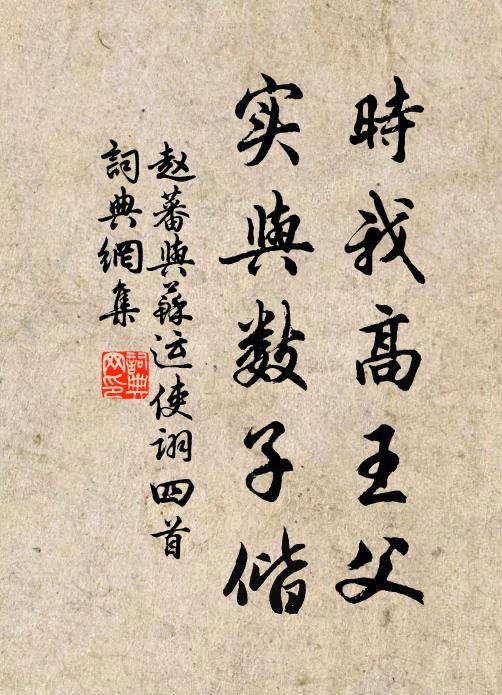 時我高王父
实與数子偕
赵蕃與蘇运使詡四首
詞典網集
詞典網印